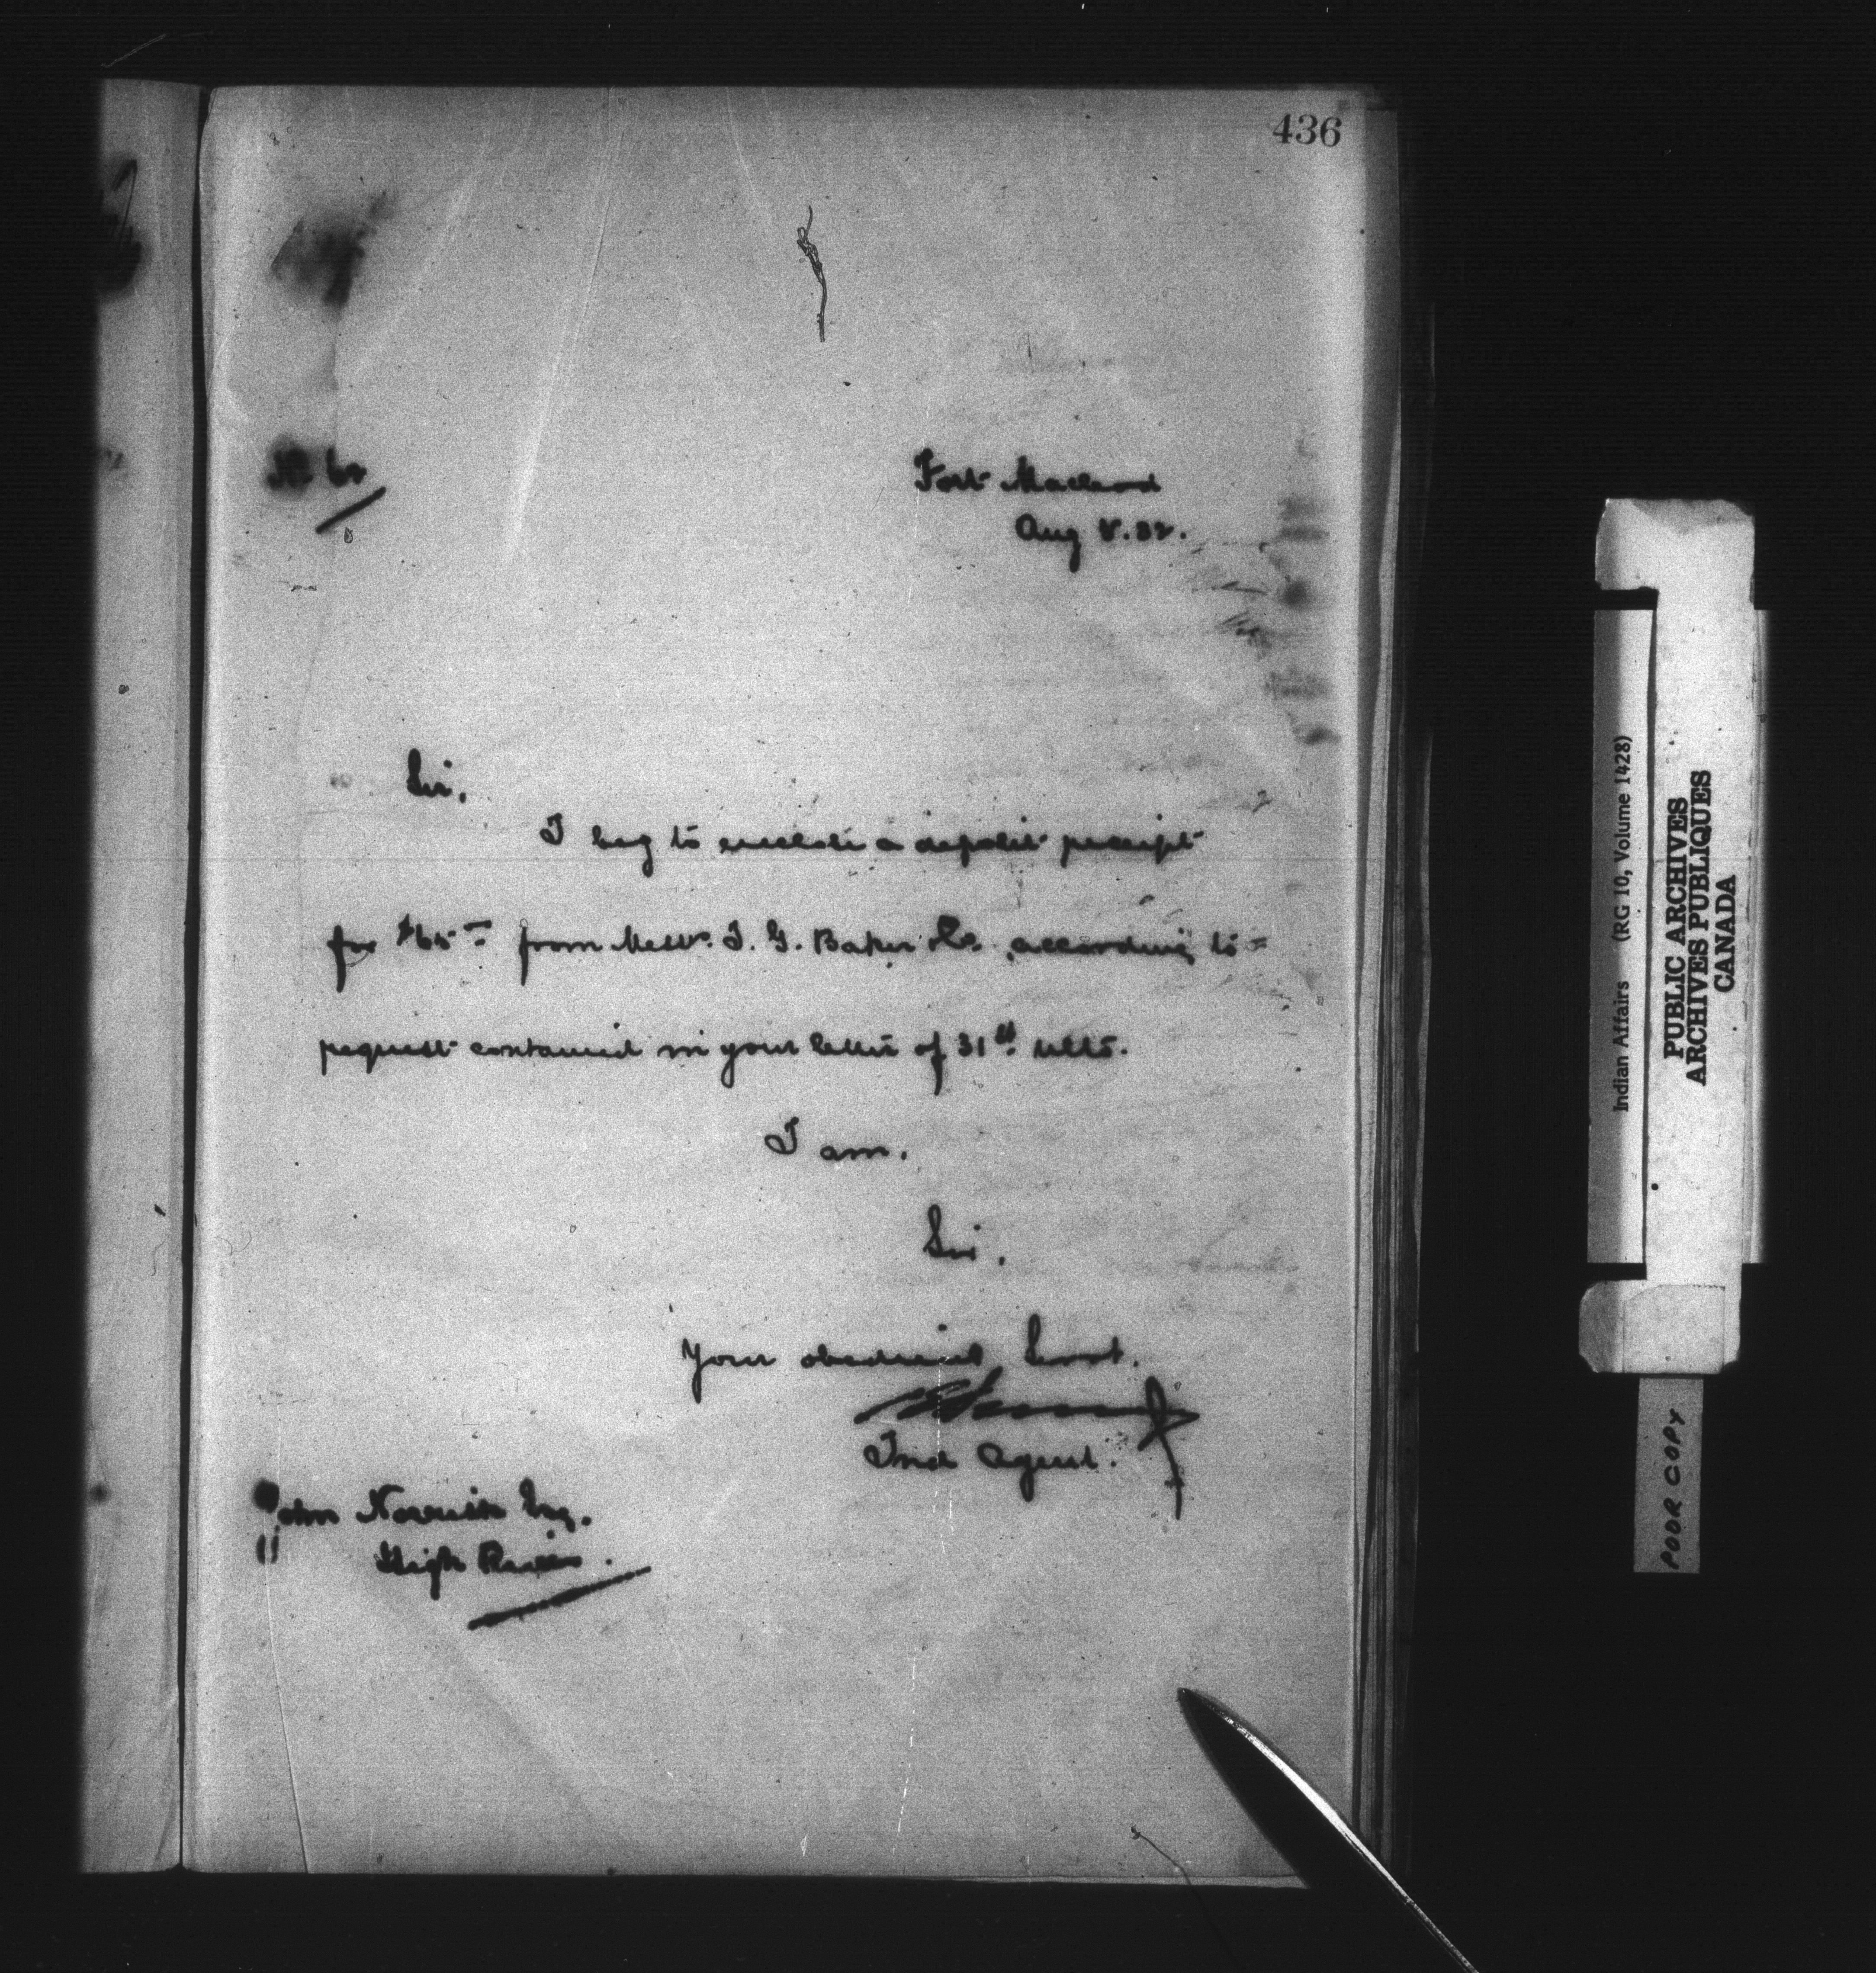 436
Fort Macleod
Aug 8. 82.
Sir,
I beg to enclose a deposit receipt
for $65 from Messrs. I. G. Baker & Co. according to =
request contained in your letter of 31st ulto.
I am,
Sir,
Your obedient Servt.
Ind Agent.
John Norrish Esq.
High River.
Indian Affairs (RG 10, Volume 1428)
PUBLIC ARCHIVES
ARCHIVES PUBLIQUES
CANADA
POOR COPY